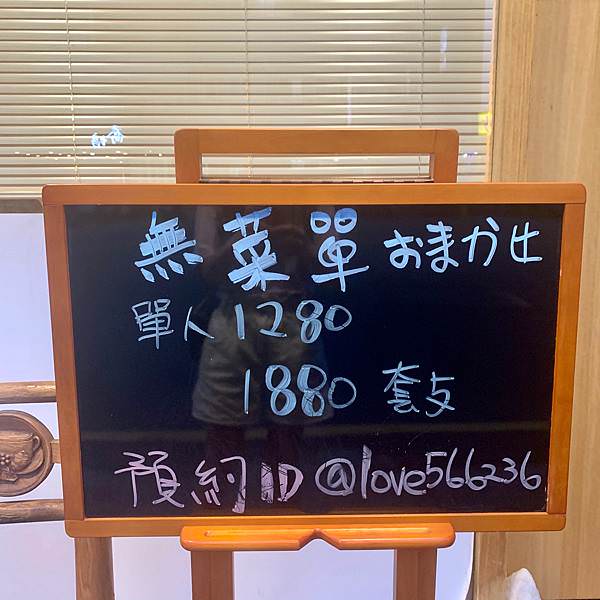 無菜單 おまかせ
單人 1280
1880 套餐
預約 ID @love566236